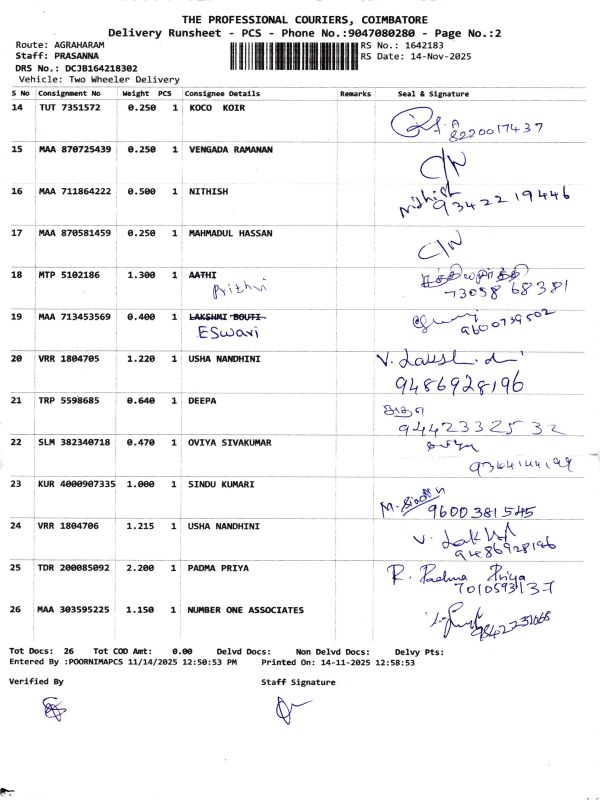 THE PROFESSIONAL COURIERS, COIMBATORE
Delivery Runsheet - PCS - Phone No.:9047080280 - Page No.:2
Route: AGRAHARAM
RS No.: 1642183
Staff: PRASANNA
RS Date: 14-Nov-2025
DRS No.: DCJB164218302
Vehicle: Two Wheeler Delivery
S No Consignment No Weight PCS Consignee Details Remarks Seal & Signature
14 TUT 7351572 0.250 1 KOCO KOIR
8220017437
15 MAA 870725439 0.250 1 VENGADA RAMANAN
C/N
16 MAA 711864222 0.500 1 NITHISH Nithish
9342219446
17 MAA 870581459 0.250 1 MAHMADUL HASSAN
C/N
18 MTP 5102186 1.300 1 AATHI
Prithvi 73058 68381
19 MAA 713453569 0.400 1 LAKSHMI BOUTI
ESwari 9600739502
20 VRR 1804705 1.220 1 USHA NANDHINI
9486928196
21 TRP 5598685 0.640 1 DEEPA
9442332532
22 SLM 382340718 0.470 1 OVIYA SIVAKUMAR
23 KUR 4000907335 1.000 1 SINDU KUMARI
9600381545
24 VRR 1804706 1.215 1 USHA NANDHINI
9486928196
25 TDR 200085092 2.200 1 PADMA PRIYA R. Padma Priya
7010593137
26 MAA 303595225 1.150 1 NUMBER ONE ASSOCIATES
Tot Docs: 26 Tot COD Amt: 0.00 Delvd Docs: Non Delvd Docs: Delvy Pts:
Entered By :POORNIMAPCS 11/14/2025 12:50:53 PM Printed On: 14-11-2025 12:58:53
Verified By Staff Signature